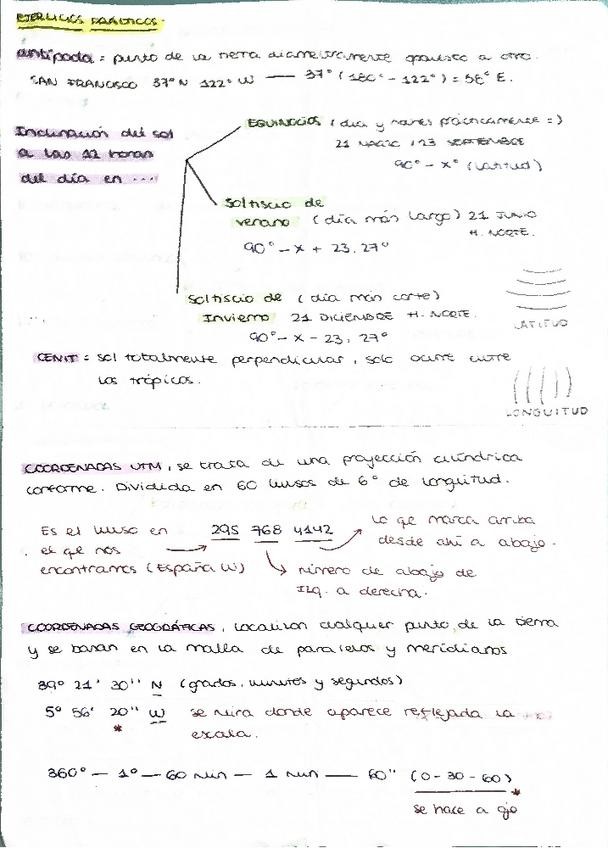 EJERCICIOS PRÁCTICOS.
antípoda = punto de la tierra diametralmente opuesto a otro.
SAN FRANCISCO 37° N 122° W — 37° (180° - 122°) = 58° E.
Inclinación del sol
a las 12 horas
del día en ....
EQUINOCCIOS (día y noches prácticamente =)
21 MARZO / 23 SEPTIEMBRE
90° - x° (latitud)
Solticio de
verano (día más largo) 21 JUNIO
H. NORTE.
90° - x + 23,27°
Solticio de (día más corto)
Invierno 21 DICIEMBRE H. NORTE.
90° - x - 23,27°
LATITUD
CENIT : sol totalmente perpendicular, solo ocurre entre
los trópicos.
LONGUITUD
COORDENADAS UTM, se trata de una proyección cilíndrica
conforme. Dividida en 60 husos de 6° de longuitud.
Es el huso en
el que nos
encontramos (España W)
29S 768 4142
lo que marca arriba
desde ahí a abajo.
número de abajo de
Izq. a derecha.
COORDENADAS GEOGRÁFICAS, localizan cualquier punto de la tierra
y se basan en la malla de paralelos y meridianos
39° 21' 30'' N (grados, minutos y segundos)
5° 56' 20'' W se mira donde aparece reflejada la
* escala.
360° — 1° — 60 min — 1 min — 60'' (0 - 30 - 60)
*
se hace a ojo